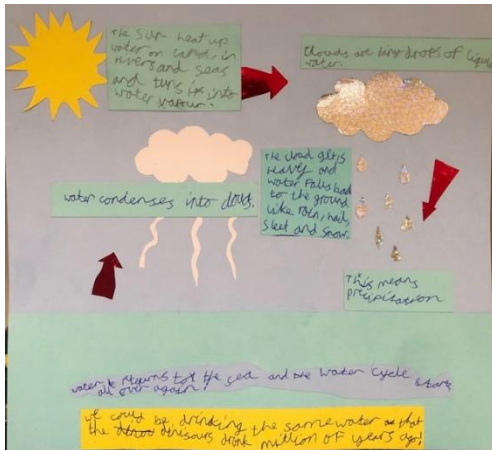 The Sun heat up
water on land, in
rivers and seas
and turns it into
water vapour.
Clouds are tiny drops of liquid
water.
The cloud gets
heavy and
water falls back
to the ground
like rain, hail,
sleet and snow.
water condenses into clouds.
This means
precipitation
water returns to the sea and the water cycle starts
all over again!
we could be drinking the same water as that
the dinosaurs drank million of years ago!